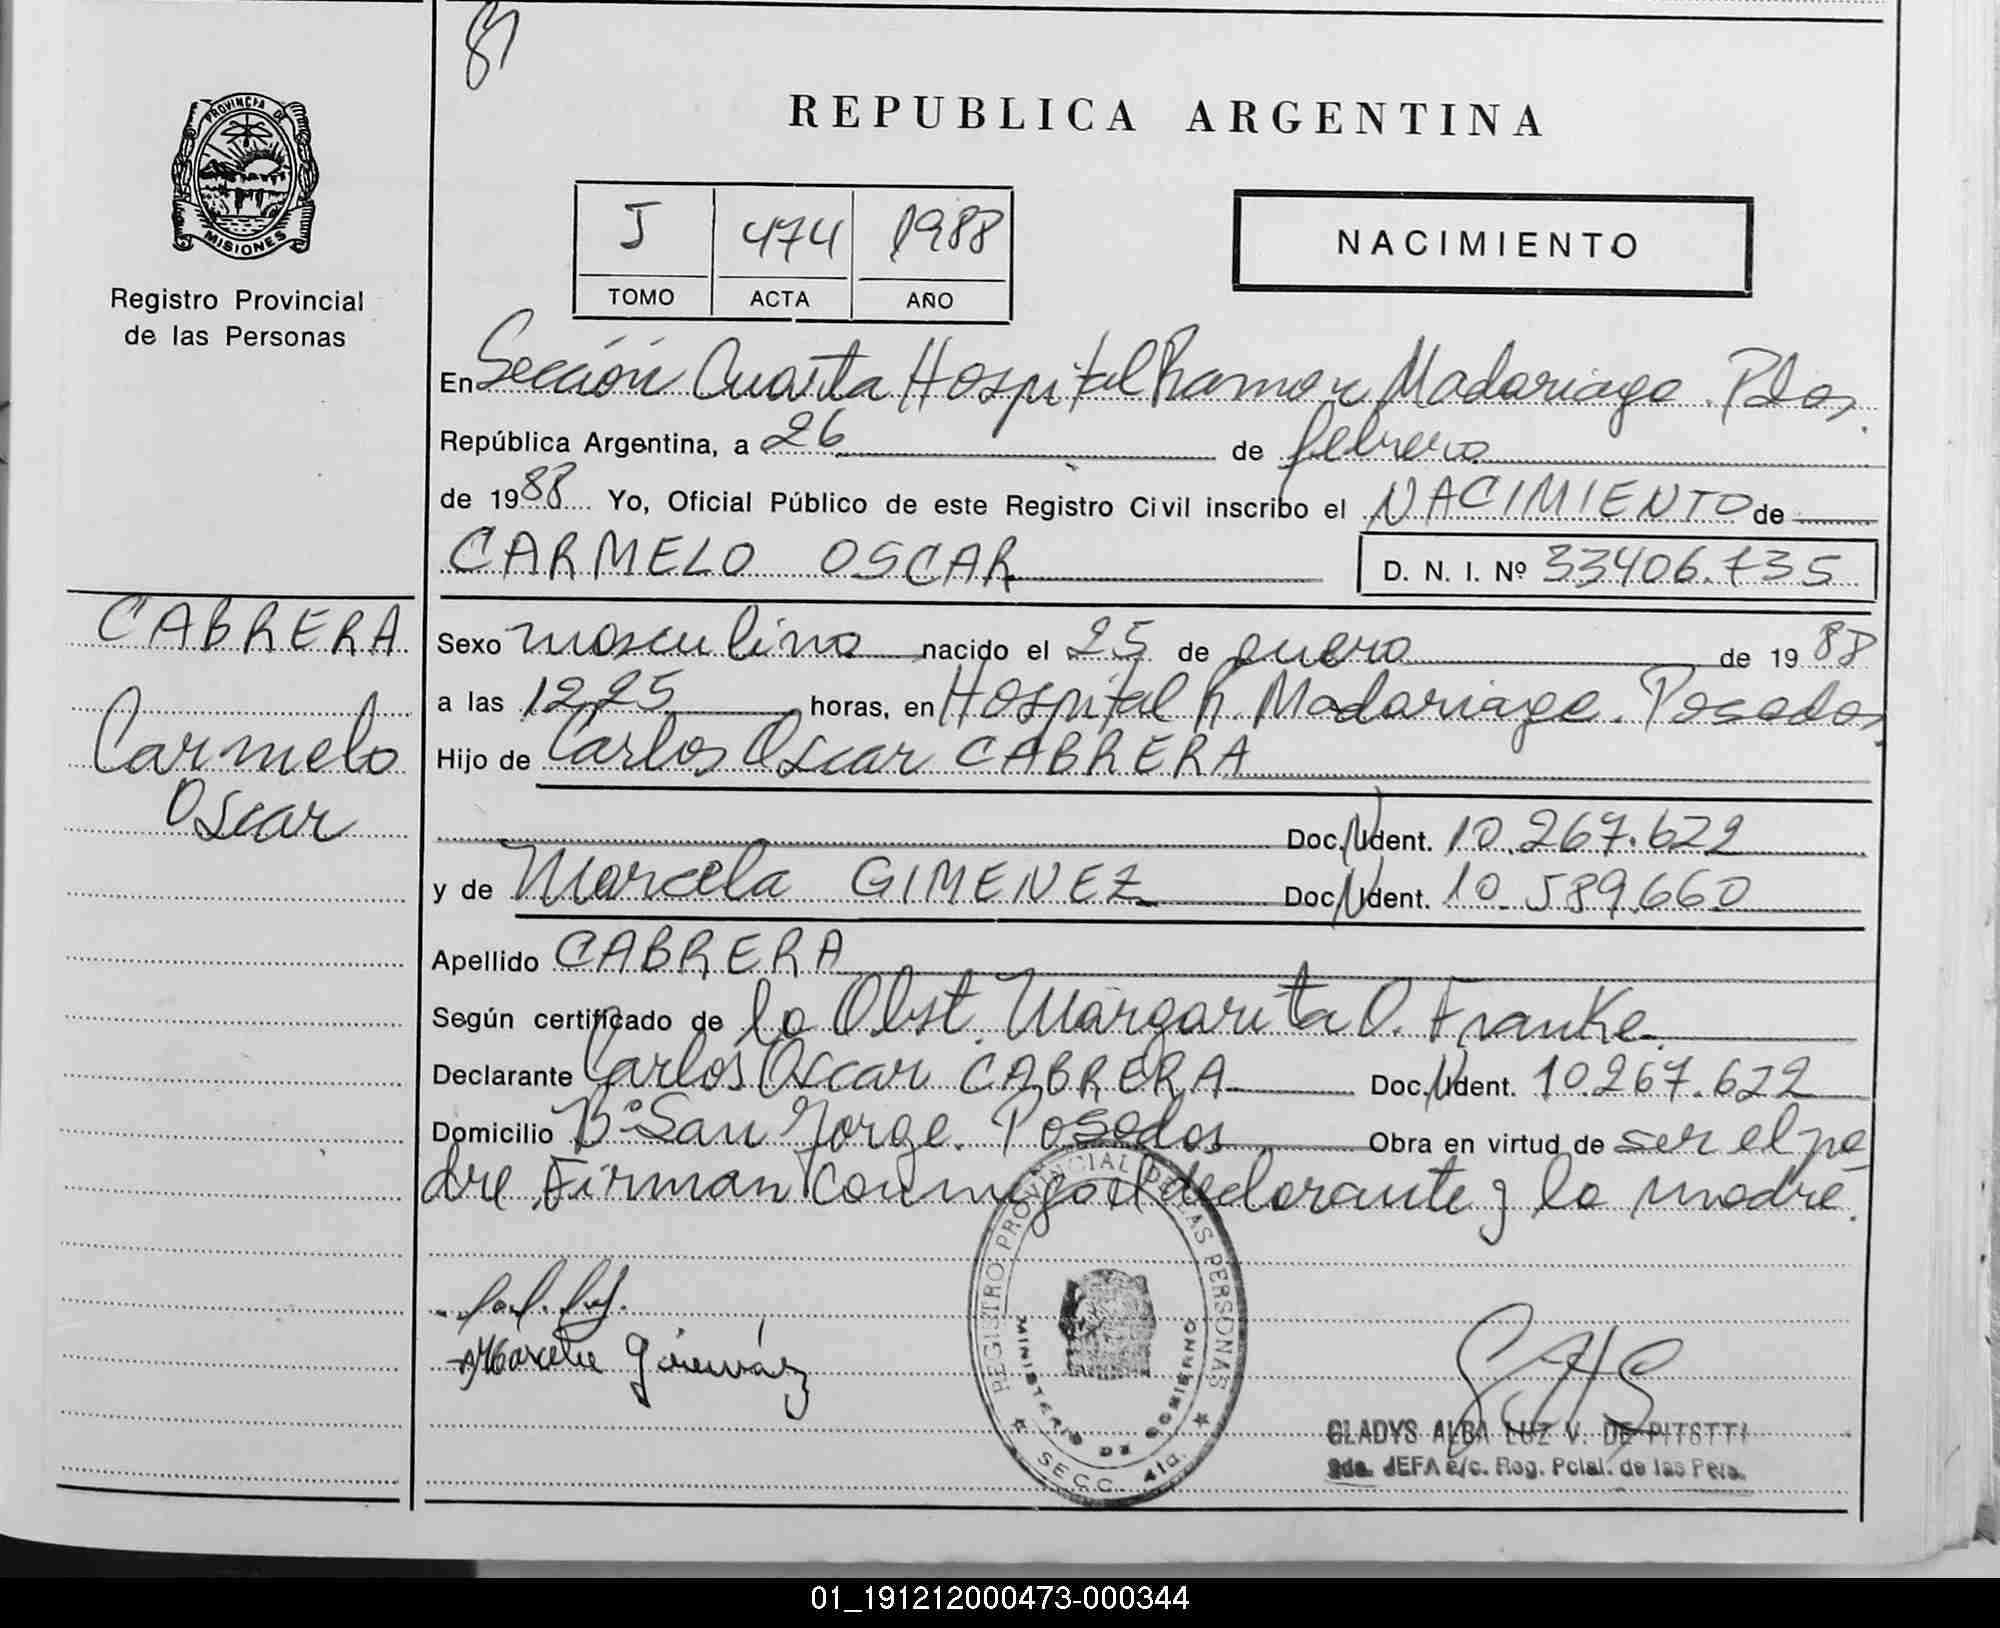 87
PROVINCIA DE
MISIONES
Registro Provincial
de las Personas
REPUBLICA ARGENTINA
J 474 1988
TOMO ACTA AÑO
NACIMIENTO
En Sección Cuarta Hospital Ramon Madariaga. Pdas.
República Argentina, a 26 de febrero
de 1988 Yo, Oficial Público de este Registro Civil inscribo el NACIMIENTO de
CARMELO OSCAR D. N. I. Nº 33406.735
CABRERA
Carmelo
Oscar
Sexo masculino nacido el 25 de enero de 1988
a las 12,25 horas, en Hospital R. Madariaga. Posadas.
Hijo de Carlos Oscar CABRERA
Doc. N Ident. 10.267.622
y de Marcela GIMENEZ Doc. N Ident. 10.589.660
Apellido CABRERA
Según certificado de la Obst. Margarita O. Franke.
Declarante Carlos Oscar CABRERA Doc. N Ident. 10.267.622
Domicilio Bº San Jorge. Posadas Obra en virtud de ser el pa-
dre. Firman conmigo el declarante y la madre.
REGISTRO PROVINCIAL DE LAS PERSONAS
MINISTERIO DE GOBIERNO
SECC. 4ta.
Marcela
GLADYS ALBA LUZ V. DE PITSTTI
2da. JEFA a/c. Reg. Pcial. de las Pers.
01_191212000473-000344